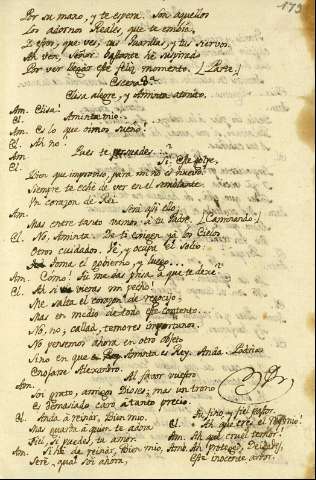 173
Por su mano, y te espera. Son aquellos
Los adornos Reales, que te embia,
Estos, que ves, tus Guardias, y tus siervos.
Ah ven, Señor: bastante he suspirado
Por ver llegar este feliz momento. (Parte.)
Escena 8ª
Elisa alegre, y Aminta atonito.
Am. Elisa!
El. Aminta mio.
Am. Es lo que oimos sueño?
El. Ah no!
Am. Pues te
El. Si. Este golpe,
Bien que improviso, para mi no es nuevo.
Siempre te eché de ver en el semblante
Un corazon de Rei.
Am. Será asi ello;
Mas entre tanto vamos á tu Padre. (Caminando.)
El. No, Aminta. De ti exigen ya los Cielos
Otros cuidados. Vé, y ocupa el Solio.
Toma el gobierno, y luego...
Am. Cómo! Tú me das prisa á que te dexe?
El. Ah si vieras mi pecho!
Me salta el corazon de regocijo;
Mas en medio de todo este contento...
No, no; callad, temores importunos.
No pensemos ahora en otro objeto
Sino en que Aminta es Rey. Anda. Podria
Enojarse Alexandro.
Am. Al favor vuestro
Soi grato, amigos Dioses; mas un trono
Es demasiado caro á tanto precio.
El. Anda á reinar, bien mio.
Mas guarda á quien te adora
Fiel, si puedes, tu amor.
Am. Si he de reinar, bien mio,
Seré, qual soi ahora,
Tu fino, y fiel pastor.
El. Ah que eres el Rei mio!
Am. Ah qué cruel temor!
Amb. Ah proteged, Deidades,
Este inocente amor.